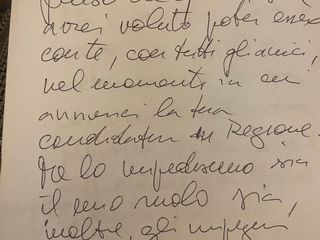 avrei voluto poter essere
con te, con tutti gli amici,
nel momento in cui
annunci la tua
candidatura in Regione.
Me lo impediscono sia
il mio ruolo sia,
inoltre, gli impegni